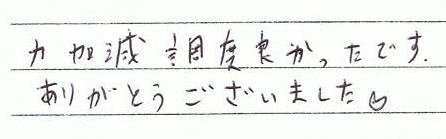 力加減調度良かったです.
ありがとうございました